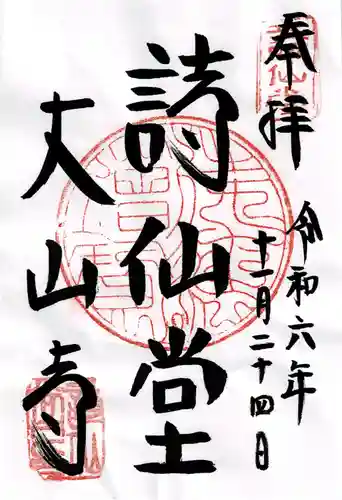 奉拝
令和六年
十一月二十四日
詩仙堂
丈山寺